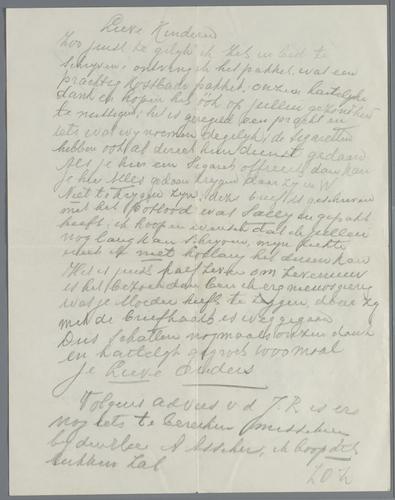 Lieve Kinderen
Zoo juist de gelijk ik zet in bed te
schrijven ontving ik het pakket, was een
prachtig kostbaar pakket, onzen hartelijke
dank en hopen het ook op jullen gezondheid
te nuttigen, het is geregeld een pracht en
iets wat wij noemen degelijk, de Sigaretten
hebben ook al direct hun dienst gedaan
Als je hier een Sigaret offreert dan kan
je hier alles gedaan krijgen daar zij
Niet te krijgen zijn, deze brief is geschreven
met het potlood wat Sally in gepakt
heeft, ik hoop en wensch dat ik jullen
nog lang kan schrijven, mijn
niet
Het is juist half zeven om zeven uur
is het bezoek dan ben ik erg nieuwsgierig
wat je Moeder heeft te zeggen, daar zij
met de briefkaart is weggegaan
Dus Schatten nogmaals onzen dank
en hartelijk gegroet 1000 maal
Je Lieve Ouders
Volgens advies v d J.R. is er
nog iets te bereiken misschien
bij A Asscher, ik hoop dit
lukken zal
Z.O.Z.